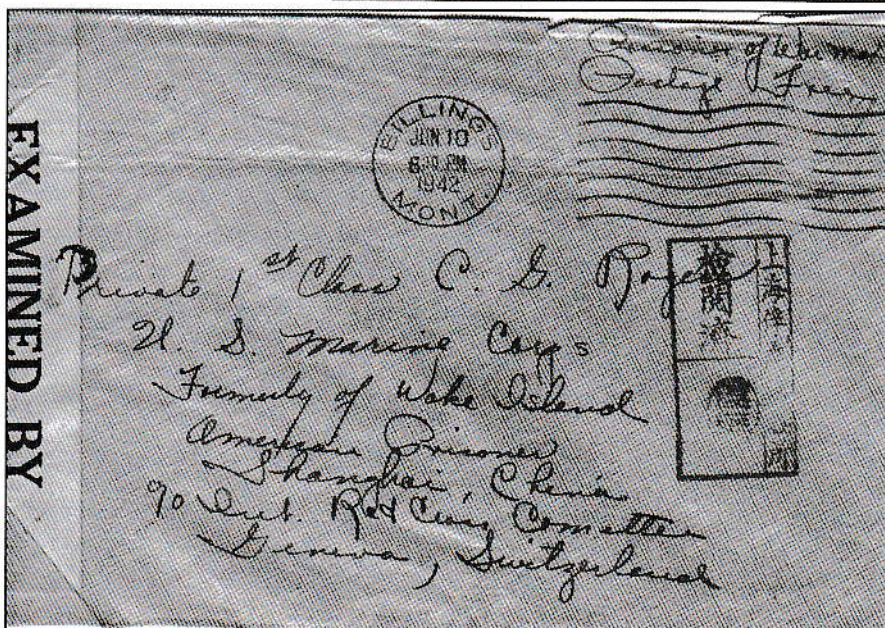 Prisoner of War mail
Postage Free
BILLINGS
JUN 10
6 30 PM
1942
MONT.
EXAMINED BY
Private 1st Class C. G. Rogers
U. S. Marine Corps
Formerly of Wake Island
American Prisoner
Shanghai, China
℅ Int. Red Cross Comettee
Geneva, Switzerland
上海俘
檢閲濟